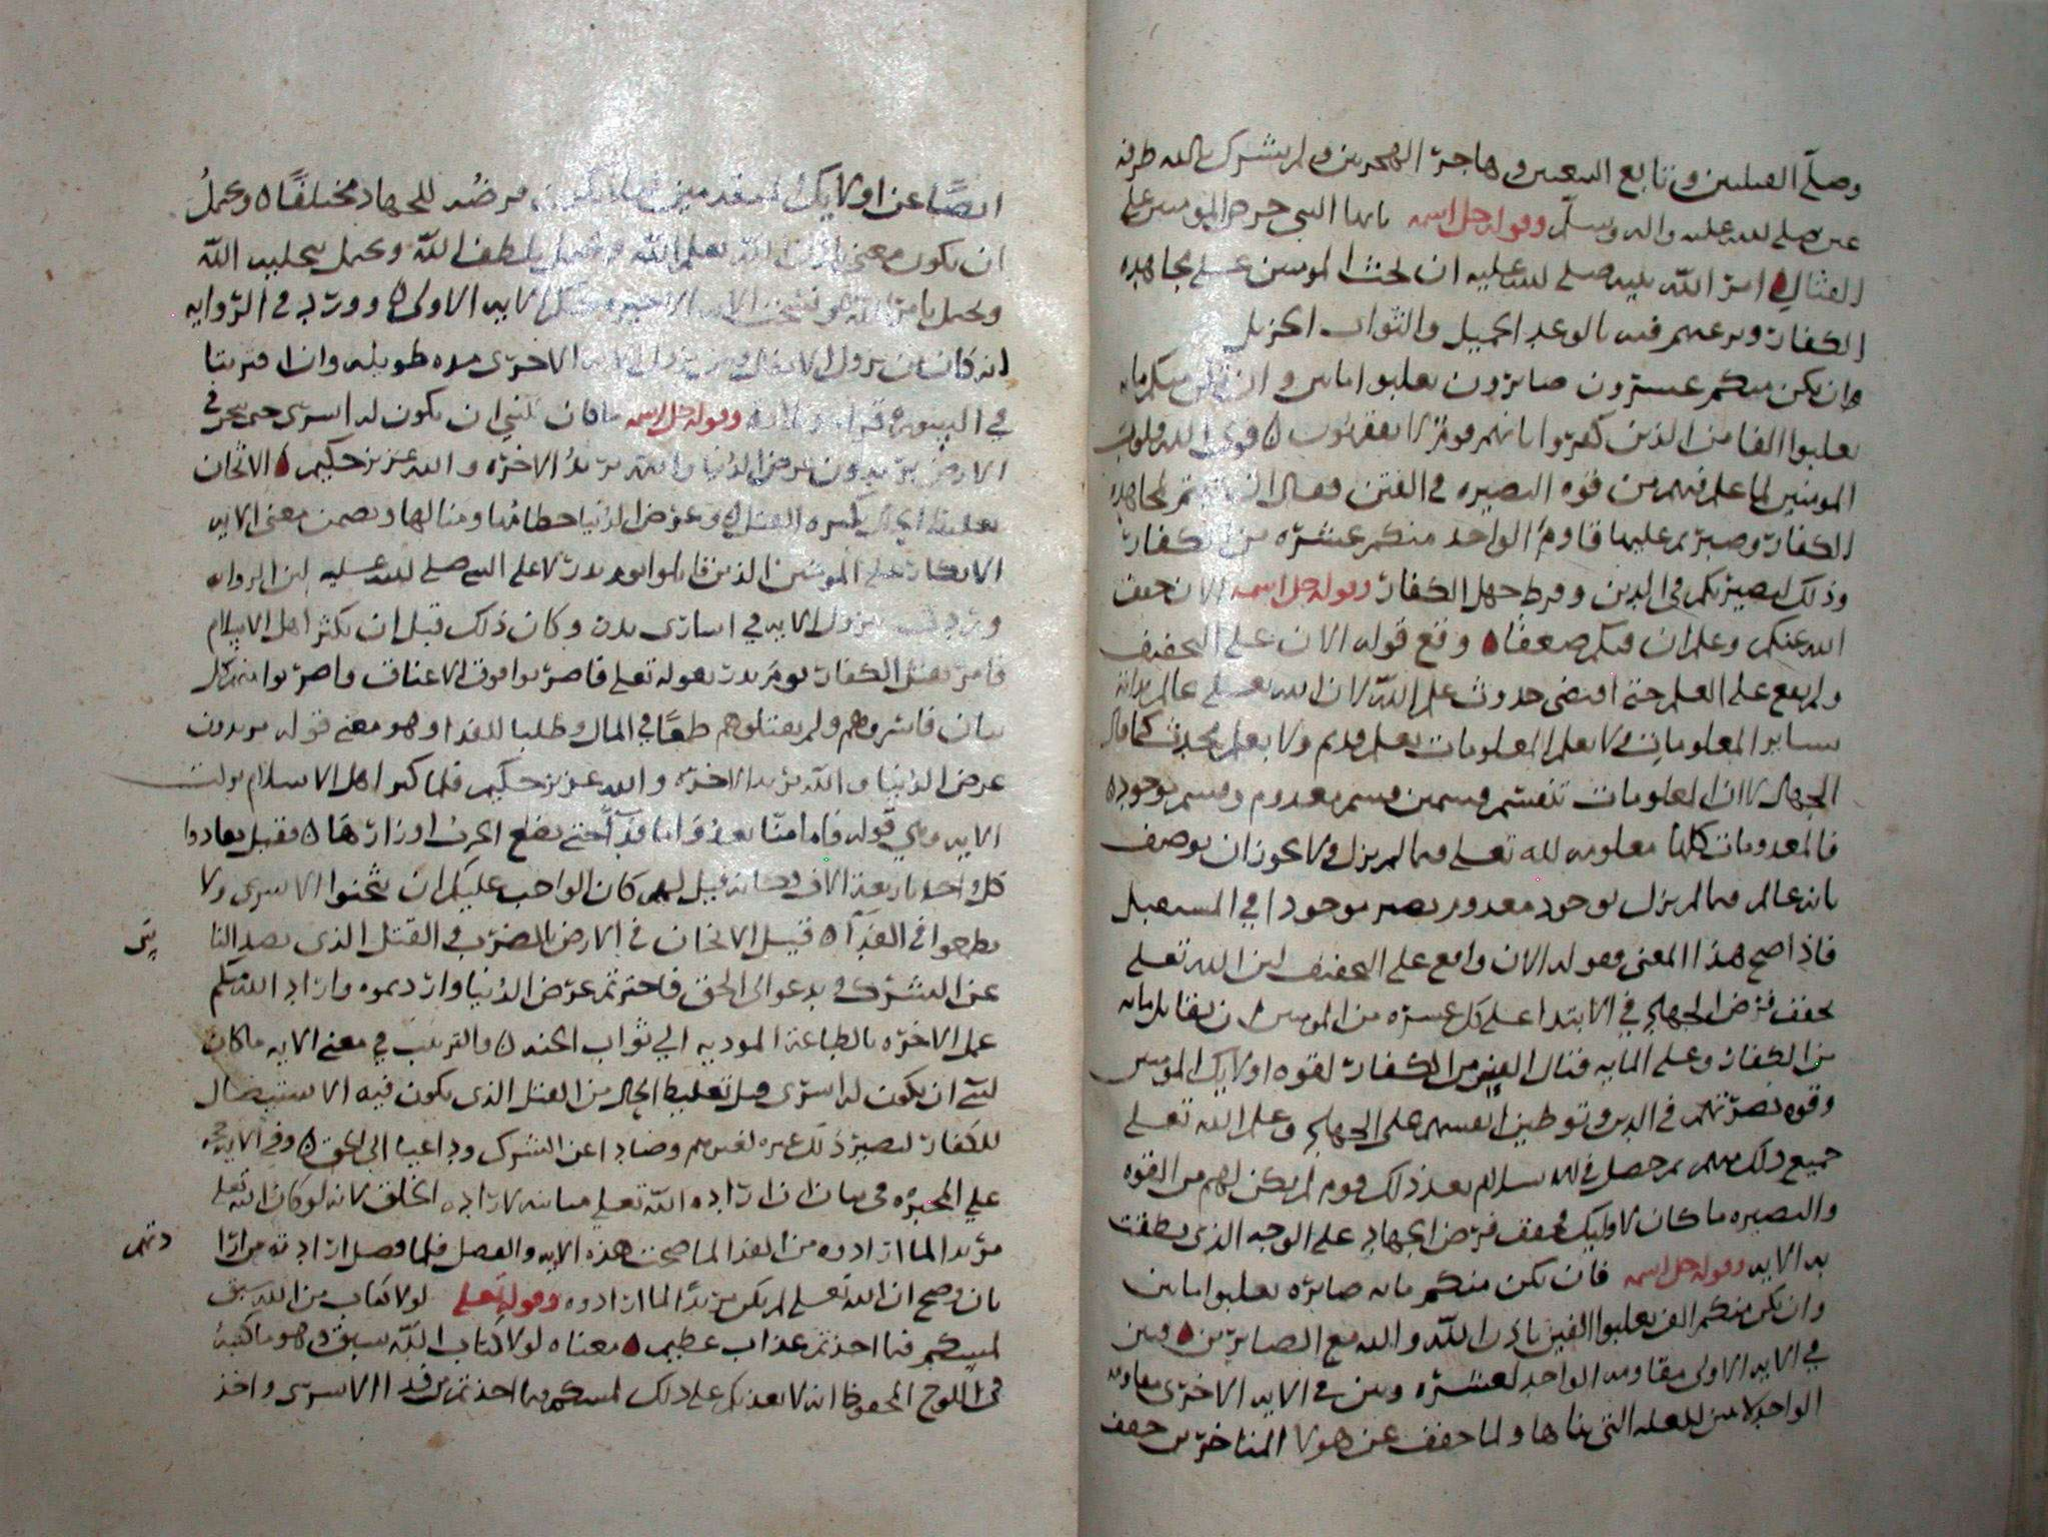 وصلى القبلتين وبايع البيعتين وهاجر الهجرتين ولم يشرك بالله طرفة
عين صلى الله عليه واله وسلم وقوله جل اسمه يايها النبي حرض المومنين على
القتال امر الله نبيه صلى الله عليه ان يحث المومنين على مجاهدة
الكفار ويرغبهم فيه بالوعد الجميل والثواب الجزيل
وان يكن منكم عشرون صابرون يغلبوا مايتين وان تكن منكم مايه
يغلبوا الفا من الذين كفروا بانهم قوم لا يفقهون قوى الله قلوب
المومنين لما علم فيهم من قوه البصيره في الفتن فقال ان لمجاهدة
الكفار وصبرتم عليها قاوم الواحد منكم عشره من الكفار
وذلك لبصيرتكم في الدين وفرط جهل الكفار وقوله جل اسمه الان خفف
الله عنكم وعلم ان فيكم ضعفا وقع قوله الان على التخفيف
ولم يقع على العلم حتى اقتضى حدوث علم الله لان الله تعالى عالم بذاته
بساير المعلومات ولا يعلم المعلومات بعلم قديم ولا بعلم محدث كما قال
الجهال لان المعلومات تنقسم قسمين قسم معدوم وقسم موجود
فالمعدومات كلها معلومه لله تعلى فيما لم يزل ولا يجوز ان يوصف
بانه عالم فيما لم يزل بوجود معدوم يصير موجودا في المستقبل
فاذا صح هذا المعنى فقوله الان واقع على التخفيف لان الله تعلى
خفف فرض الجهاد في الابتدا على كل عشره من المومنين ان يقاتل مايه
من الكفار وعلى المايه قتال الف من الكفار لقوه اولايك المومنين
وقوه بصرتهم في الدين وتوطين انفسهم على الجهاد وعلم الله تعلى
جميع ذلك منهم ثم حصل في الاسلام بعد ذلك قوم لم يكن لهم من القوه
والبصيره ما كان لاوليك فخفف فرض الجهاد على الوجه الذي نطقت
به الايه وقوله جل اسمه فان يكن منكم مايه صابره يغلبوا مايتين
وان يكن منكم الف يغلبوا الفين باذن الله والله مع الصابرين فبين
في الايه الاولى مقاومه الواحد لعشره وبين في الايه الاخرى مقاومه
الواحد لاثنين للعله التي بيناها ولما خفف عن هولا المتاخرين خفف
ايضا عن اولايك المتقدمين ليلا يكون فرضه للجهاد مختلفا ويحتمل
ان يكون معنى باذن الله بعلم الله ويحتمل بلطف الله ويحتمل بتخليه الله
ويحتمل بامر الله وقد نسخت الايه الاخيره حكم الايه الاولى وورد في الروايه
انه كان بين نزول الاولى وبين نزول الايه الاخرى مده طويله وان اقتربتا
في السوره قراه وقوله جل اسمه ما كان لنبي ان يكون له اسرى حتى يثخن في
الارض يريدون عرض الدنيا والله يريد الاخره والله عزيز حكيم الاثخان
بكثره القتل وعرض الدنيا حطامها ومنالها وتضمن معنى الايه
الانكار على المومنين الذين قاتلوا يوم بدر لا على النبي صلى الله عليه لان الروايه
وردت بنزول الايه في اسارى بدر وكان ذلك قبل ان يكثر اهل الاسلام
فامر بقتل الكفار يوم بدر بقوله تعلى فاضربوا فوق الاعناق واضربوا منهم كل
بنان فاسروهم ولم يقتلوهم طمعا في المال وطلبا للفدا وهو معنى قوله تريدون
عرض الدنيا والله يريد الاخره والله عزيز حكيم فلما كثر اهل الاسلام نزلت
الايه وهي قوله فاما منا بعد واما فدآ حتى تضع الحرب اوزارها فقيل بفادوا
كل واحد باربعة الاف وكانه قيل لهم كان الواجب عليكم ان تثخنوا الاسرى ولا
تطمعوا في الفدآ قيل الاثخان في الارض الضرب في القتل الذي يصد النا
عن الشرك ويدعو الى الحق فاخترتم عرض الدنيا واردتموه واراد الله منكم
عمل الاخره بالطاعة الموديه الى ثواب الجنه والترتيب في معنى الايه ما كان
لنبي ان يكون له اسرى قبل تغليظ الحال من القتل الذي يكون فيه الاستيصال
للكفار ليصير ذلك عبره لغيرهم وصادا عن الشرك وداعيا الى الحق وفي الايه حجه
على المجبره في بيان ان اراده الله تعلى مباينه لاراده الخلق لانه لو كان الله تعلى
مريدا لما ارادوه من الفدا لما صحت هذه الايه والفصل فلما فصل ارادته من ارا
بان وصح ان الله تعلى لم يكن مريدا لما ارادوه وقوله تعلى لولا كتاب من الله سبق
لمسكم فيما اخذتم عذاب عظيم معناه لولا كتاب الله سبق وهو ما كتبه
في اللوح المحفوظ انه لا يعذبكم على ذلك لمسكم فيما اخذتم من فدا الاسرى واخذ
س
دتهم